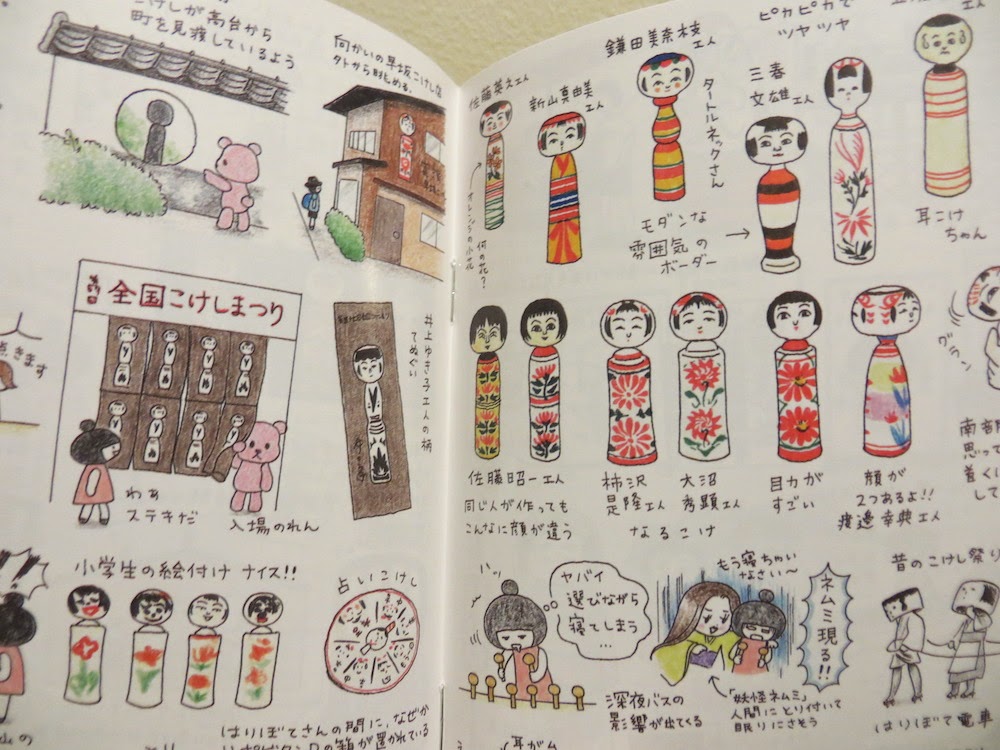 こけしが高台から
町を見渡しているよう
向かいの早坂こけし店
外から眺める。
全国こけしまつり
点きます
わぁ
ステキだ
入場のれん
井上ゆき子工人の柄
てぬぐい
小学生の絵付け ナイス!!
占いこけし
はりぼてさんの間に、なぜか
が置かれている
佐藤英之工人
オレンジの小花
何の花?
新山真由美
工人
鎌田美奈枝
工人
タートルネックさん
モダンな
雰囲気の
ボーダー
→
三春
文雄工人
ピカピカで
ツヤツヤ
耳こけ
ちゃん
佐藤昭一工人
同じ人が作っても
こんなに顔が違う
柿沢
是隆工人
大沼
秀顯工人
なるこけ
目力が
すごい
顔が
2つあるよ!!
渡邊幸典工人
グラ
南部
思って
着くに
して
ヤバイ
選びながら
寝てしまう
…
深夜バスの
影響が出てくる
もう寝ちゃい
なさい〜
ネムミ現る!!
「妖怪ネムミ」
人間にとり付いて
眠りにさそう
昔のこけし祭り
はりぼて電車